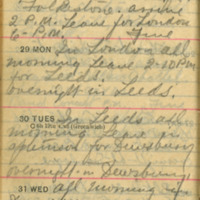 Folkstone. arrive
2 P.M. Leave for London
6- P.M. Fine
29 MON In London all
morning Leave 2-10 P.M
for Leeds.
overnight in Leeds.
30 TUES In Leeds all
morning Leave in
afternoon for Dewsbury
overnight in Dewsbury.
31 WED all morning in